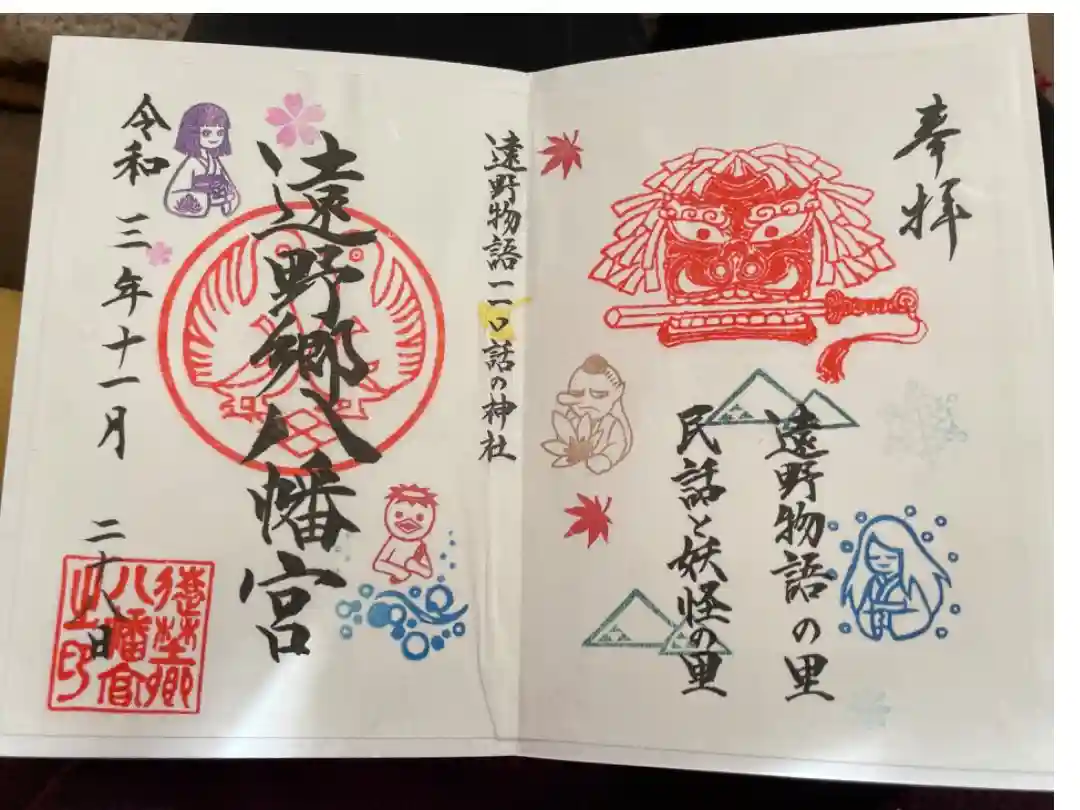 奉拝
遠野物語の里
民話と妖怪の里
遠野物語一一〇話の神社
遠野郷八幡宮
令和三年十一月二十八日
遠埜郷
八幡宮
之印